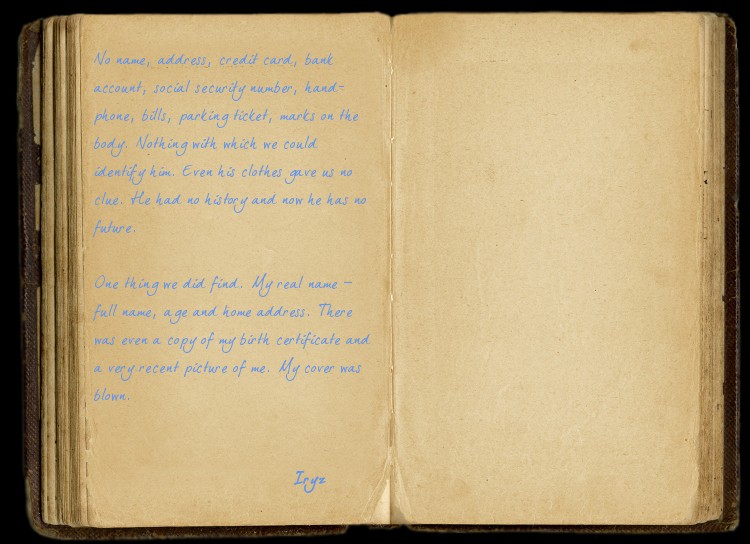 No name, address, credit card, bank
account, social security number, hand-
phone, bills, parking ticket, marks on the
body. Nothing with which we could
identify him. Even his clothes gave us no
clue. He had no history and now he has no
future.
One thing we did find. My real name –
full name, age and home address. There
was even a copy of my birth certificate and
a very recent picture of me. My cover was
blown.
Iryz